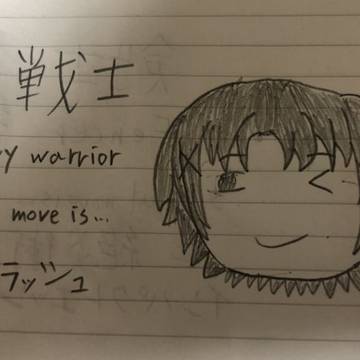 戦士
warrior
move is...
ラッシュ